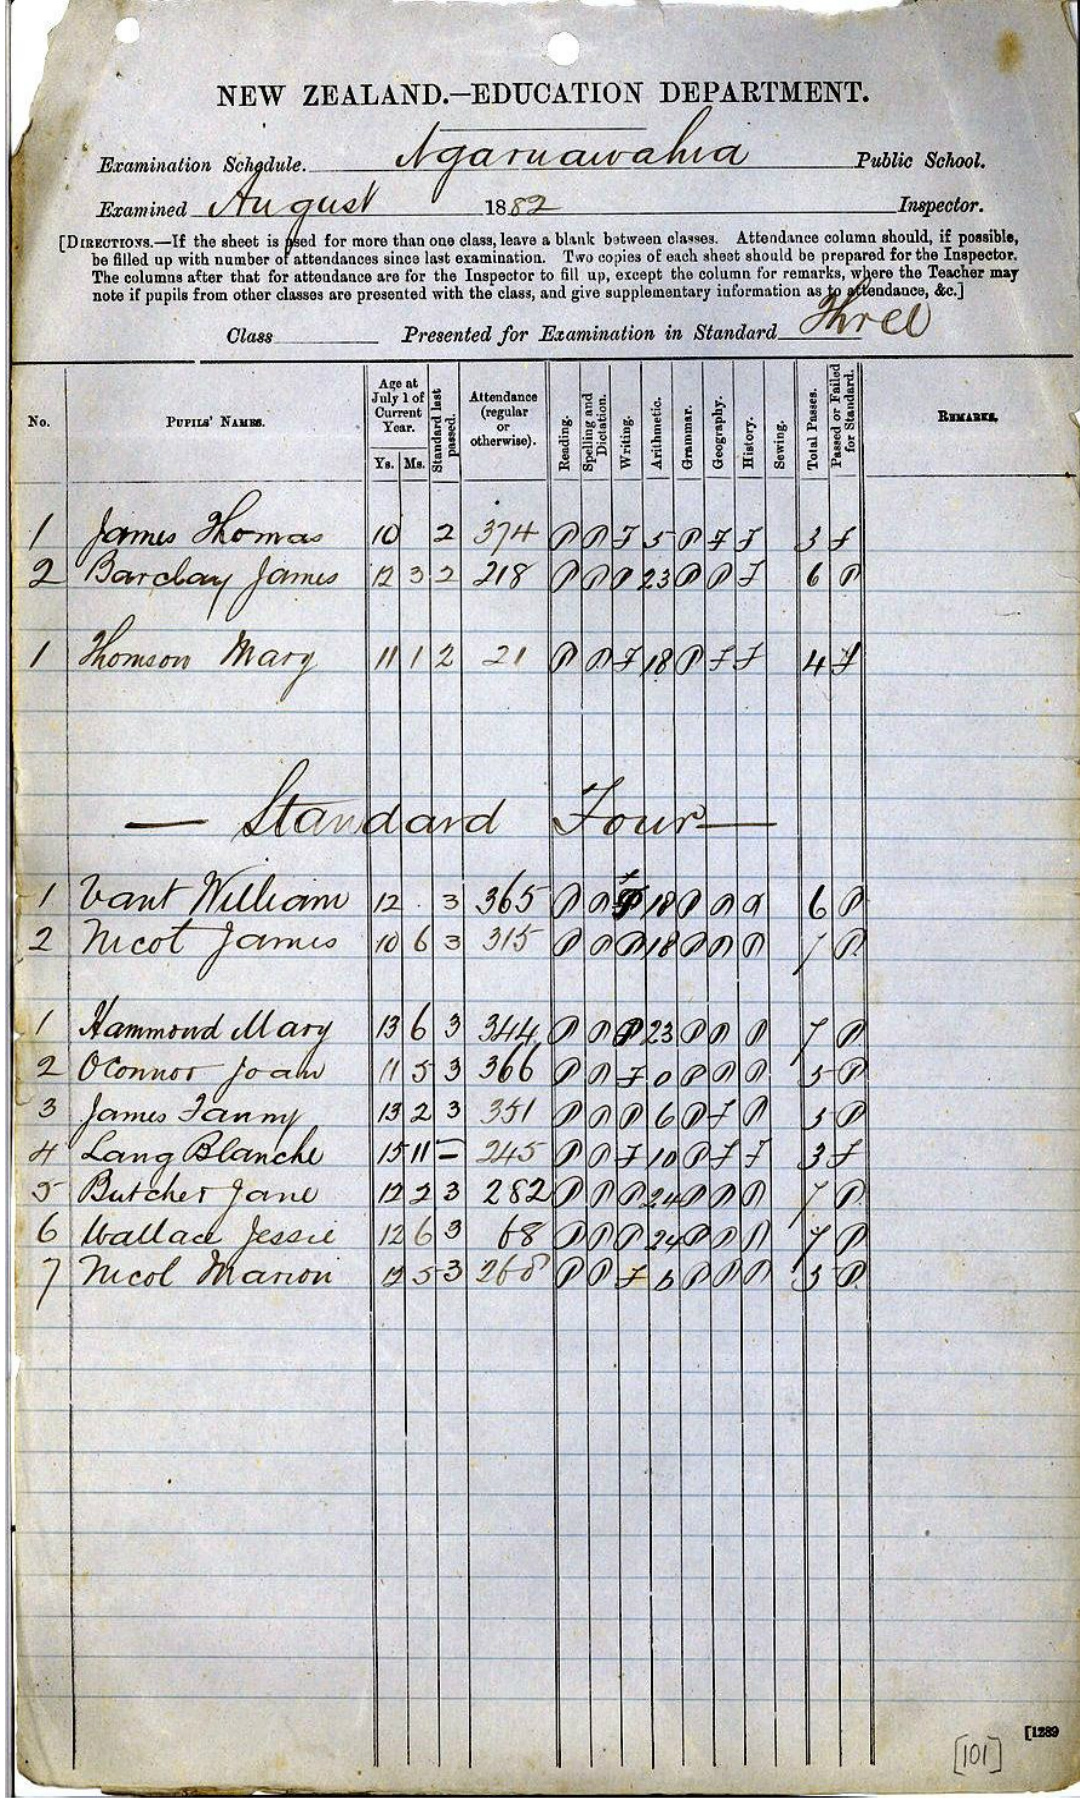 NEW ZEALAND.—EDUCATION DEPARTMENT.
Examination Schedule. Ngaruawahia Public School.
Examined August 1882 Inspector.
[DIRECTIONS.—If the sheet is used for more than one class, leave a blank between classes. Attendance column should, if possible,
be filled up with number of attendances since last examination. Two copies of each sheet should be prepared for the Inspector.
The columns after that for attendance are for the Inspector to fill up, except the column for remarks, where the Teacher may
note if pupils from other classes are presented with the class, and give supplementary information as to attendance, &c.]
Class Presented for Examination in Standard Three
No. PUPILS' NAMES. Age at July 1 of Current Year. Ys. Ms. Standard last passed. Attendance (regular or otherwise). Reading. Spelling and Dictation. Writing. Arithmetic. Grammar. Geography. History. Sewing. Total Passes. Passed or Failed for Standard. REMARKS.
1 James Thomas 10 2 374 P P F 5 P F F 3 F
2 Barclay James 12 3 2 218 P P P 23 P P F 6 P
1 Thomson Mary 11 1 2 21 P P F 18 P F F 4 F
— Standard Four —
1 Vant William 12 3 365 P P F 18 P P P 6 P
2 Nicol James 10 6 3 315 P P P 18 P P P 7 P
1 Hammond Mary 13 6 3 344 P P P 23 P P P 7 P
2 OConnor Joan 11 5 3 366 P P F 0 P P P 5 P
3 James Fanny 13 2 3 351 P P P 6 P F P 5 P
4 Lang Blanche 15 11 – 245 P P F 10 P F F 3 F
5 Butcher Jane 12 2 3 282 P P P 24 P P P 7 P
6 Wallace Jessie 12 6 3 68 P P P 24 P P P 7 P
7 Nicol Marion 12 5 3 P P F 6 P P P 5 P
[1289
[101]